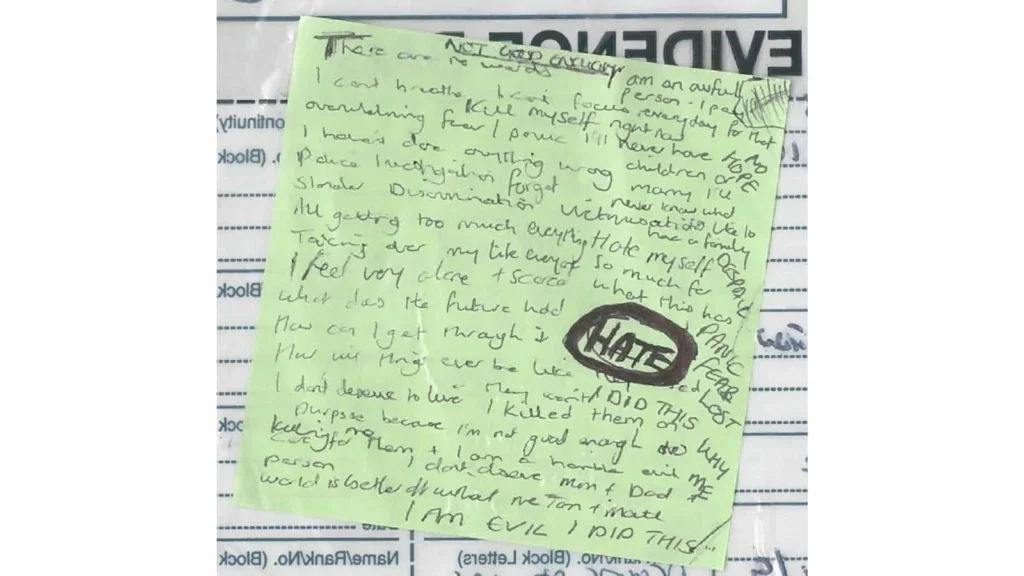 EVIDENCE
NOT GOOD ENOUGH
There are no words
I am an awful person - I pay everyday for that
I cant breathe I cant focus
Kill myself right now
overwhelming fear / panic
I'll never have children or marry I'll never know what its like to have a family
NO HOPE
I haven't done anything wrong
Police investigation forget
Slander Discrimination Victimisation
All getting too much everything
Hate myself so much for what this has
DESPAIR
Taking over my life everyone
I feel very alone + scared
What does the future hold
How can I get through it
HATE
PANIC
FEAR
LOST
How will things ever be like they
I don't deserve to live
They won't
I DID THIS
WHY ME
I killed them on purpose because I'm not good enough to care for them + I am a horrible evil person
Killing me
I don't deserve mum + Dad
world is better off without me
I AM EVIL I DID THIS
(Continuity)
No. (Block
No. (Block
(Block
(Block
(Block
Date
Name/Rank/No. (Block
Rank/No. (Block Letters)